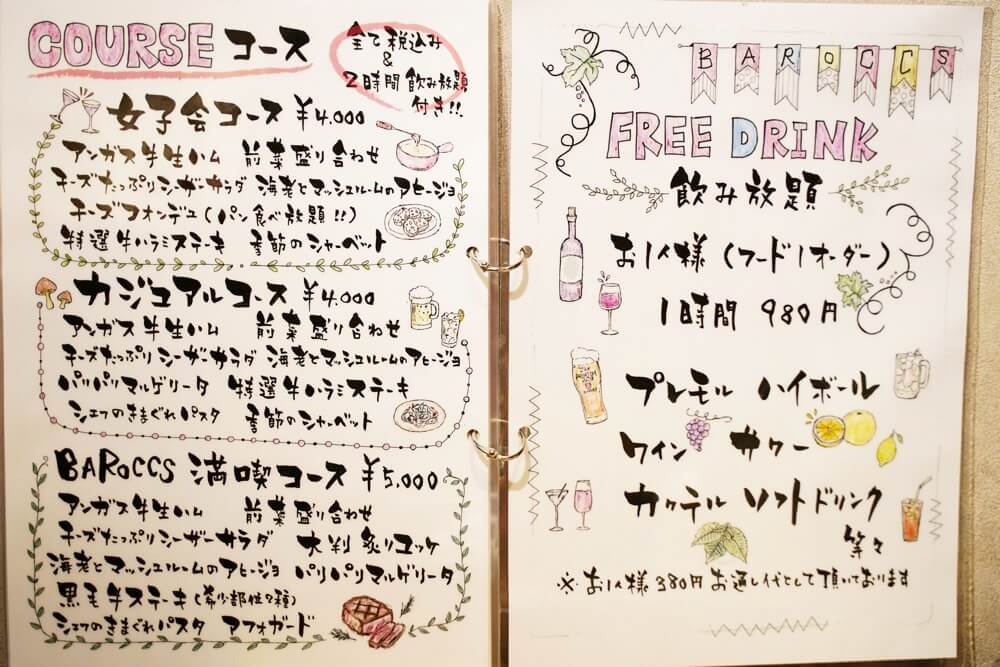 COURSE コース
全て税込み
&
2時間 飲み放題
付き!!
女子会コース ¥4,000
アンガス牛生ハム 前菜盛り合わせ
チーズたっぷりシーザーサラダ 海老とマッシュルームのアヒージョ
チーズフォンデュ(パン食べ放題!!)
特選牛ハラミステーキ 季節のシャーベット
カジュアルコース ¥4,000
アンガス牛生ハム 前菜盛り合わせ
チーズたっぷりシーザーサラダ 海老とマッシュルームのアヒージョ
パリパリマルゲリータ 特選牛ハラミステーキ
シェフのきまぐれパスタ 季節のシャーベット
BAROCCS 満喫コース ¥5,000
アンガス牛生ハム 前菜盛り合わせ
チーズたっぷりシーザーサラダ 大判炙りユッケ
海老とマッシュルームのアヒージョ パリパリマルゲリータ
黒毛牛ステーキ(希少部位2種)
シェフのきまぐれパスタ アフォガード
BAROCCS
FREE DRINK
飲み放題
お1人様(フード1オーダー)
1時間 980円
プレモル ハイボール
ワイン サワー
カクテル ソフトドリンク
等々
※お1人様380円お通し代として頂いております